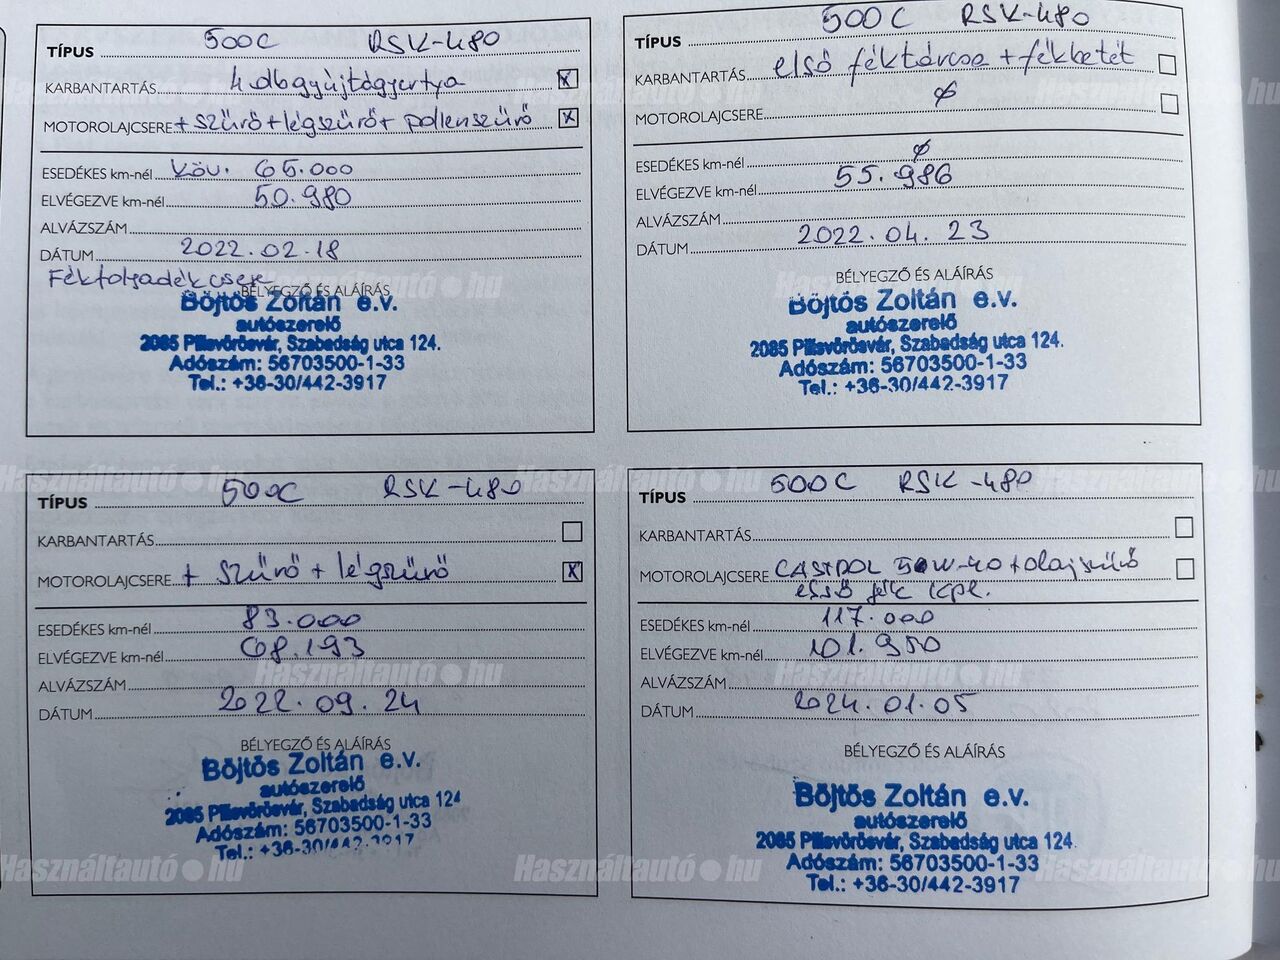 TÍPUS 500C RSK-480
KARBANTARTÁS 4 db gyújtógyertya X
MOTOROLAJCSERE + szűrő + légszűrő + pollenszűrő X
ESEDÉKES km-nél Köv. 65.000
ELVÉGEZVE km-nél 50.980
ALVÁZSZÁM
DÁTUM 2022.02.18
Fékfolyadék csere
BÉLYEGZŐ ÉS ALÁÍRÁS
Böjtös Zoltán e.v.
autószerelő
2085 Pilisvörösvár, Szabadság utca 124.
Adószám: 56703500-1-33
Tel.: +36-30/442-3917
TÍPUS 500C RSK-480
KARBANTARTÁS első féktárcsa + fékbetét
MOTOROLAJCSERE ∅
ESEDÉKES km-nél ∅
ELVÉGEZVE km-nél 55.986
ALVÁZSZÁM
DÁTUM 2022.04.23
BÉLYEGZŐ ÉS ALÁÍRÁS
Böjtös Zoltán e.v.
autószerelő
2085 Pilisvörösvár, Szabadság utca 124.
Adószám: 56703500-1-33
Tel.: +36-30/442-3917
TÍPUS 500C RSK-480
KARBANTARTÁS
MOTOROLAJCSERE + szűrő + légszűrő X
ESEDÉKES km-nél 83.000
ELVÉGEZVE km-nél 68.193
ALVÁZSZÁM
DÁTUM 2022.09.24
BÉLYEGZŐ ÉS ALÁÍRÁS
Böjtös Zoltán e.v.
autószerelő
2085 Pilisvörösvár, Szabadság utca 124
Adószám: 56703500-1-33
Tel.: +36-30/442-3917
TÍPUS 500C RSK-480
KARBANTARTÁS
MOTOROLAJCSERE CASTROL 5W-40 + olajszűrő
első fék kpl.
ESEDÉKES km-nél 117.000
ELVÉGEZVE km-nél 101.950
ALVÁZSZÁM
DÁTUM 2024.01.05
BÉLYEGZŐ ÉS ALÁÍRÁS
Böjtös Zoltán e.v.
autószerelő
2085 Pilisvörösvár, Szabadság utca 124.
Adószám: 56703500-1-33
Tel.: +36-30/442-3917
Használtautó.hu